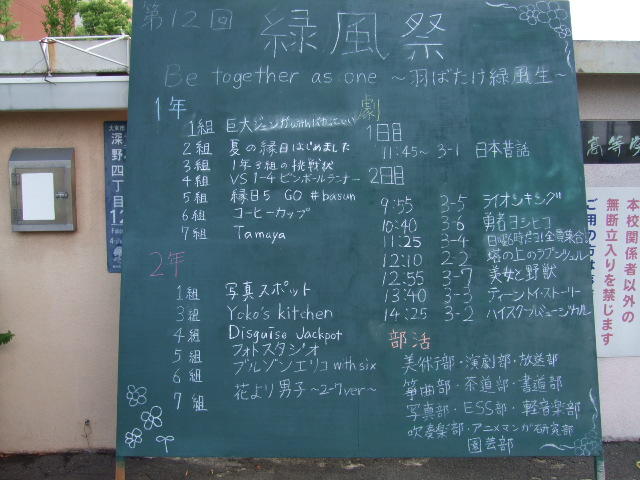 第12回 緑風祭
Be together as one ～羽ばたけ緑風生～
1年
1組 巨大ジェンガwith
2組 夏の縁日はじめました
3組 1年3組の挑戦状
4組 VS 1-4 ピンボールランナー
5組 縁日5 GO #basun
6組 コーヒーカップ
7組 Tamaya
2年
1組 写真スポット
3組 Yoko's kitchen
4組 Disguise Jackpot
5組 フォトスタジオ
6組 ブルゾンエリコ with six
7組 花より男子～2-7ver～
劇
1日目
11:45～ 3-1 日本昔話
2日目
9:55 3-5 ライオンキング
10:40 3-6 勇者ヨシヒコ
11:25 3-4 日曜6時だヨ!全員集合
12:10 2-2 塔の上のラプンツェル
12:55 3-7 美女と野獣
13:40 3-3 ディーントイ・ストーリー
14:25 3-2 ハイスクールミュージカル
部活
美術部・演劇部・放送部
箏曲部・茶道部・書道部
写真部・ESS部・軽音楽部
吹奏楽部・アニメマンガ研究部
園芸部
大東市
深野四丁目
12
高等学
本校関係者以外の
無断立入りを禁じます
ご用の方は